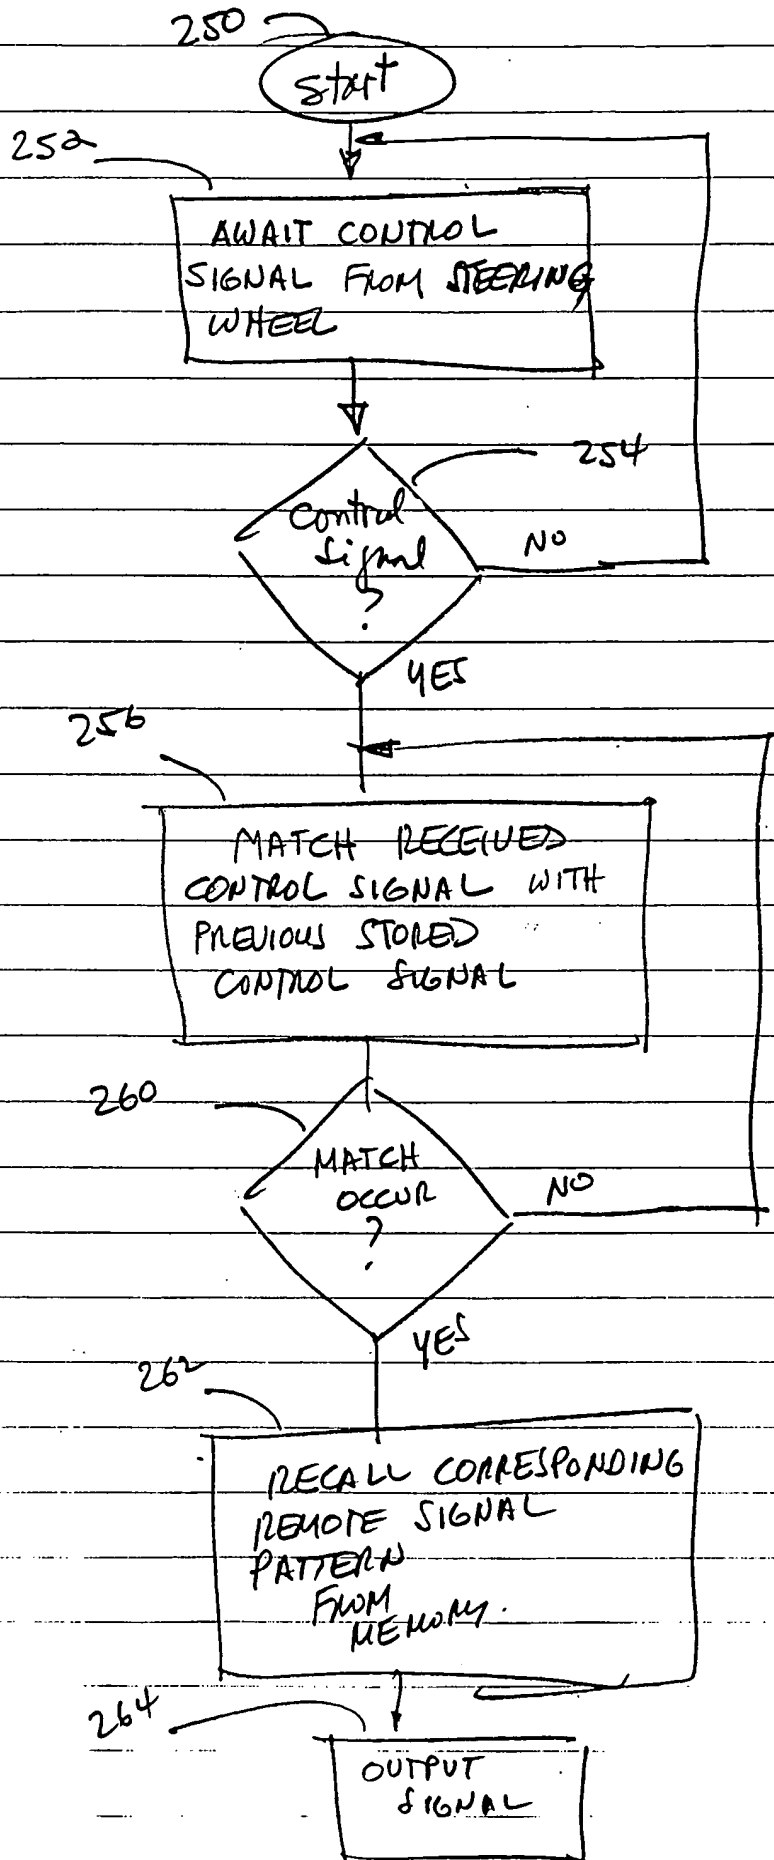 250
Start
252
AWAIT CONTROL
SIGNAL FROM STEERING
WHEEL
254
Control
Signal
?
NO
YES
256
MATCH RECEIVED
CONTROL SIGNAL WITH
PREVIOUS STORED
CONTROL SIGNAL
260
MATCH
OCCUR
?
NO
YES
262
RECALL CORRESPONDING
REMOTE SIGNAL
PATTERN
FROM
MEMORY.
264
OUTPUT
SIGNAL